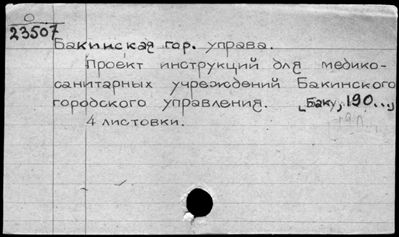 О
23507
Бакинская гор. управа.
Проект инструкций для медико-
санитарных учреждений Бакинского
городского управления. [Баку, 190...,
4 листовки.